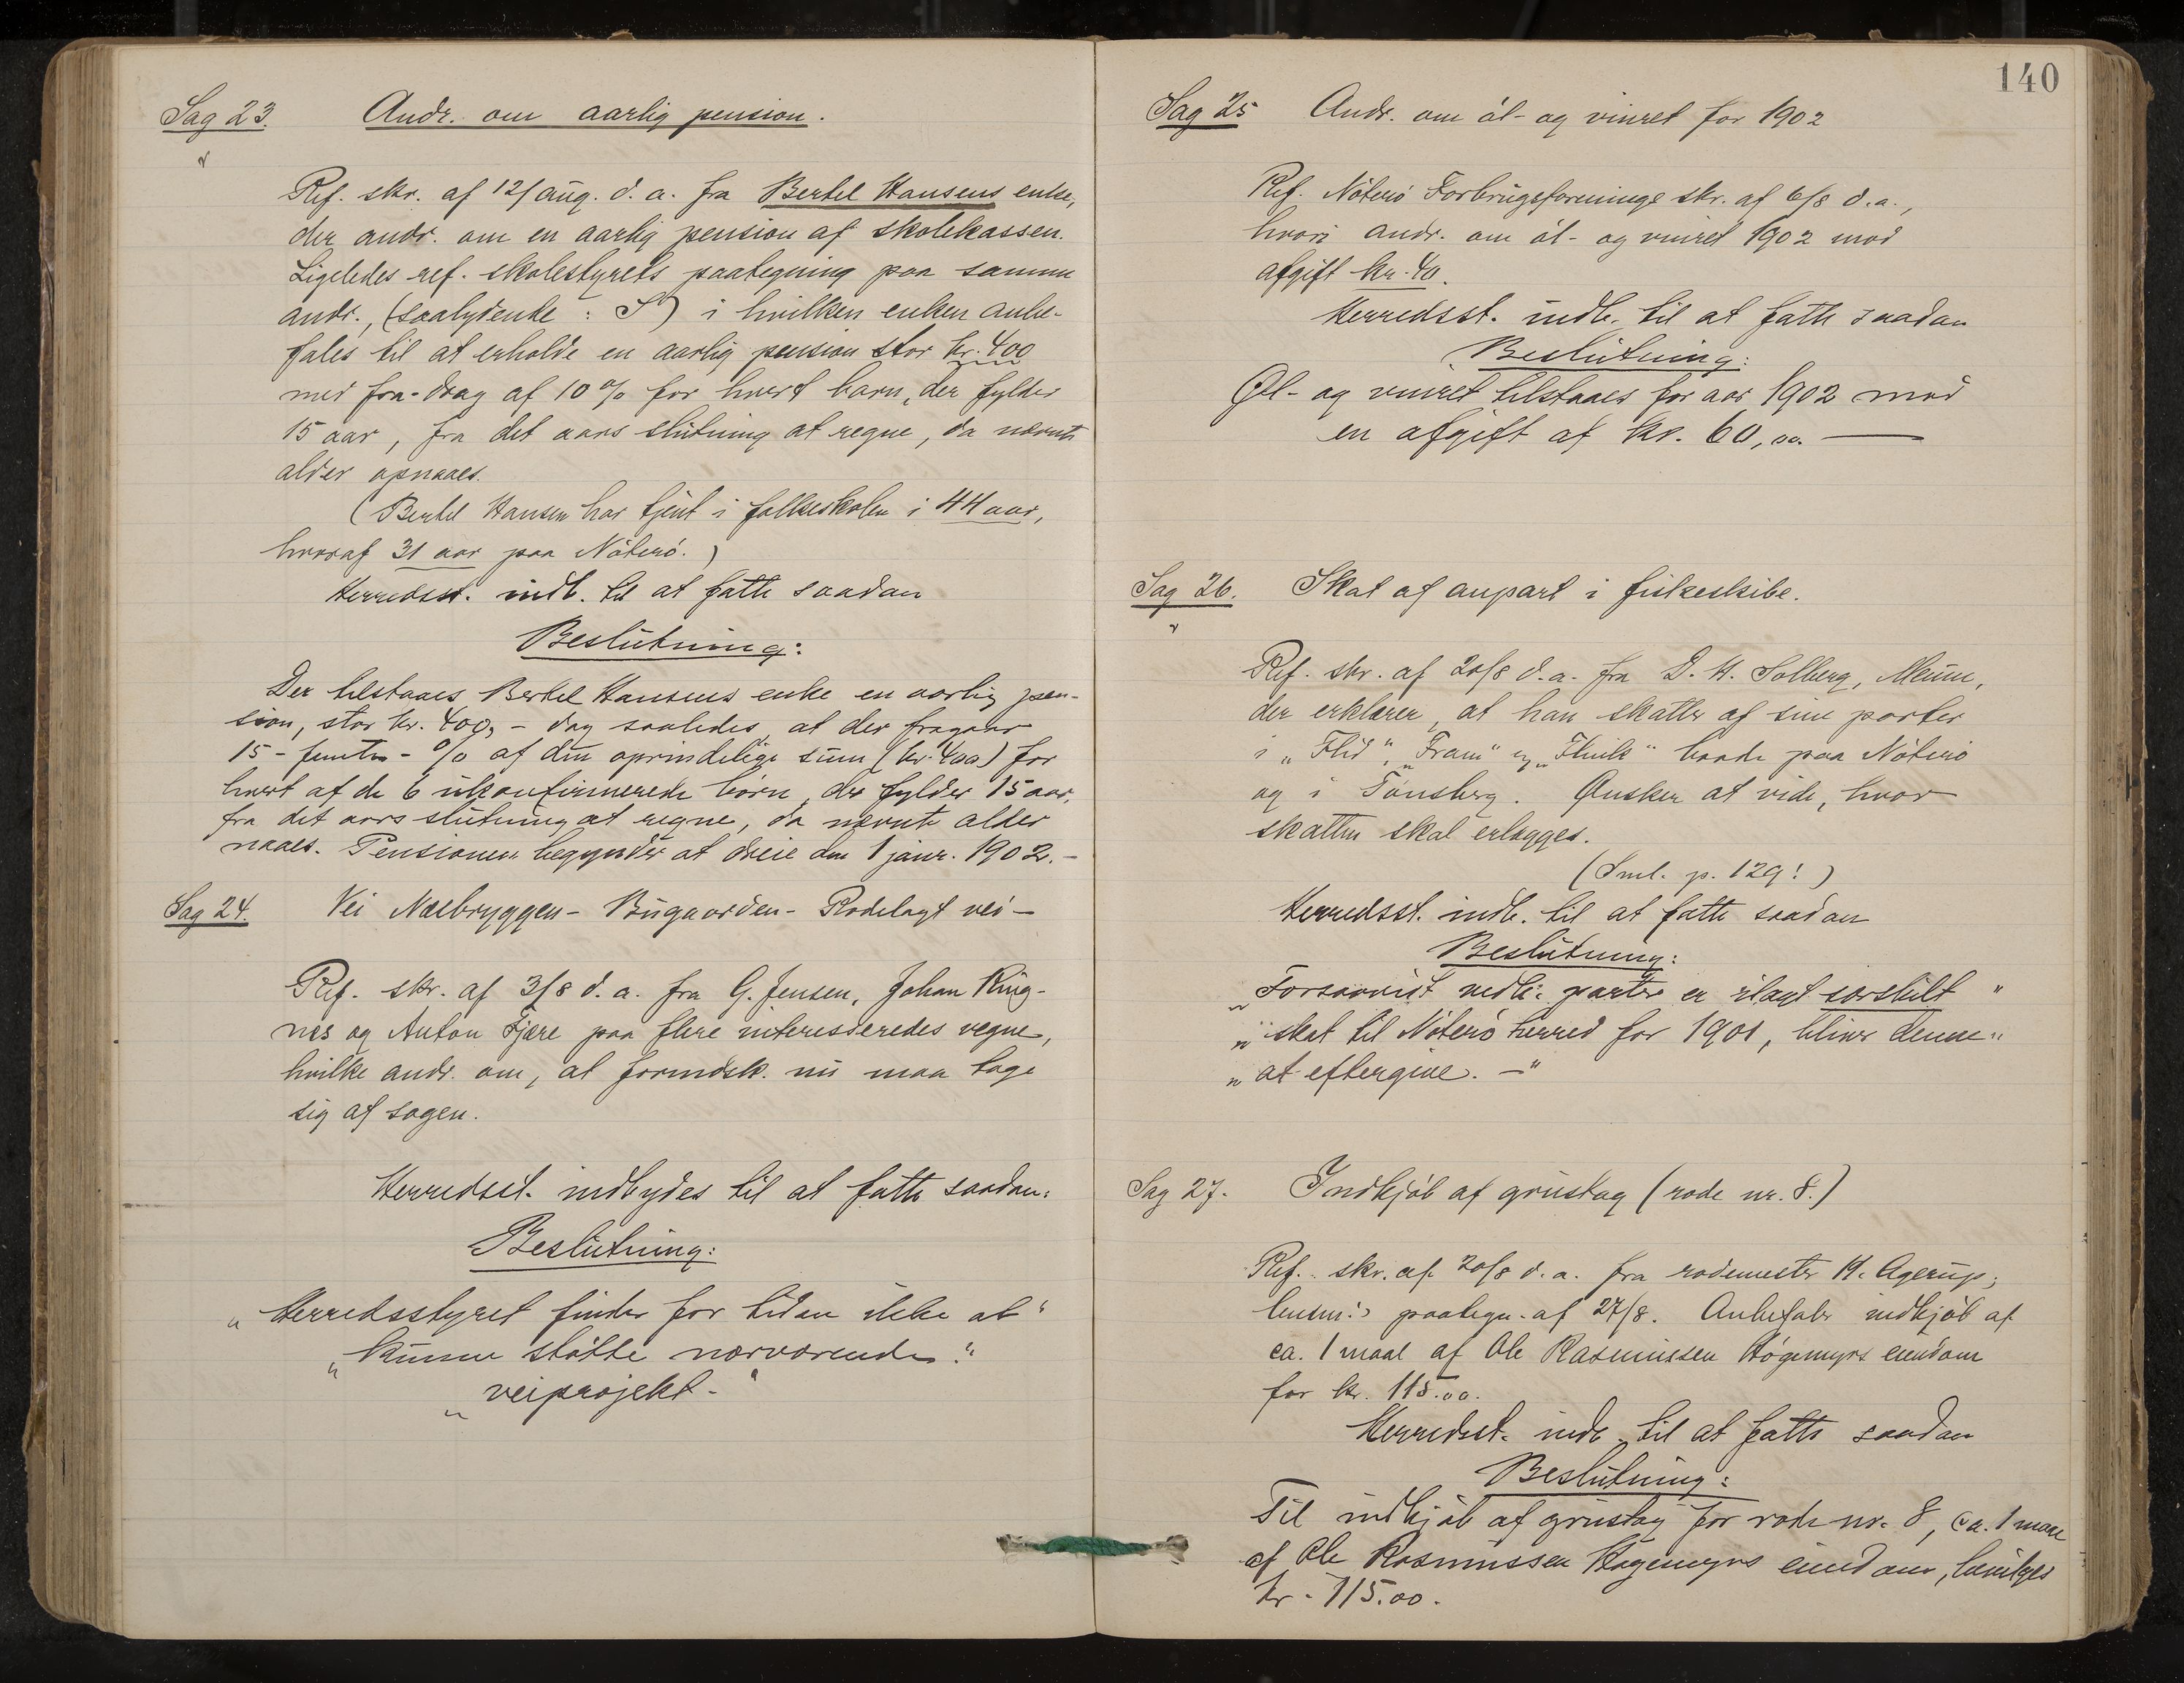 Sag 23. Andr. om aarlig pension.
Ref. skr. af 12/aug. d. a. fra Bertel Hansens enke,
der andr. om en aarlig pension af skolekassen.
Ligeledes ref. skolestyrets paategning paa samme
andr., (saalydende : S) i hvilken enken anbe-
fales til at erholde en aarlig pension stor kr. 400
med fra-drag af 10% for hvert barn, der fylder
15 aar, fra det aars slutning at regne, da nævnte
alder opnaaes.
(Bertel Hansen har tjent i folkeskolen i 44 aar,
hvoraf 31 aar paa Nøterø.)
Herredsst. indb. til at fatte saadan
Beslutning:
Der tilstaaes Bertel Hansens enke en aarlig pen-
sion, stor kr. 400, - dog saaledes at der fragaar
15 - femten - % af den oprindelige sum (kr. 400) for
hvert af de 6 ukonfirmerede børn, der fylder 15 aar,
fra det aars slutning at regne, da nævnte alder
naaes. Pensionen begynder at dreie den 1 janr. 1902. -
Sag 24. Vei Næsbryggen - Bugaarden - Rodelagt vei -
Ref. skr. af 3/8 d. a. fra G. Jensen, Johan Ring-
næs og Anton Fjære paa flere interesseredes vegne,
hvilke andr. om, at formdsk. nu maa tage
sig af sagen.
Herredsst. indbydes til at fatte saadan:
Beslutning:
"Herredsstyret finder for tiden ikke at"
"kunne støtte nærværende"
"veiprojekt. -"
140
Sag 25 Andr. om øl- og vinret for 1902
Ref. Nøterø Forbrugsforenings skr. af 6/8 d. a.,
hvori andr. om øl- og vinret 1902 mod
afgift kr. 40.
Herredsst. indb. til at fatte saadan
Beslutning:
Øl- og vinret tilstaaes for aar 1902 mod
en afgift af kr. 60,00. —
Sag 26. Skat af anpart i fiskeskibe.
Ref. skr. af 20/8 d. a. fra D. H. Solberg,
der erklærer, at han skatter af sine parter
i "Flid", "Fram" og baade paa Nøterø
og i Tønsberg. Ønsker at vide, hvor
skatten skal erlægges.
(Sml. p. 129!)
Herredsst. indb. til at fatte saadan
Beslutning:
"Forsaavidt vedk. parter er ilagt særskilt"
"skat til Nøterø herred for 1901, bliver denne"
"at eftergive. -"
Sag 27. Indkjøb af grustag (rode nr. 8.)
Ref. skr. af 20/8 d. a. fra rodemester H. Agerup;
lensm:s paategn. af 27/8. Anbefaler indkjøb af
ca. 1 maal af Ole Rasmussen Høgemyrs eiendom
for kr. 115.00.
Herredsst. indb. til at fatte saadan
Beslutning:
Til indkjøb af grustag for rode nr. 8, ca. 1 maal
af Ole Rasmussen Høgemyrs eiendom, bevilges
kr. 115.00.